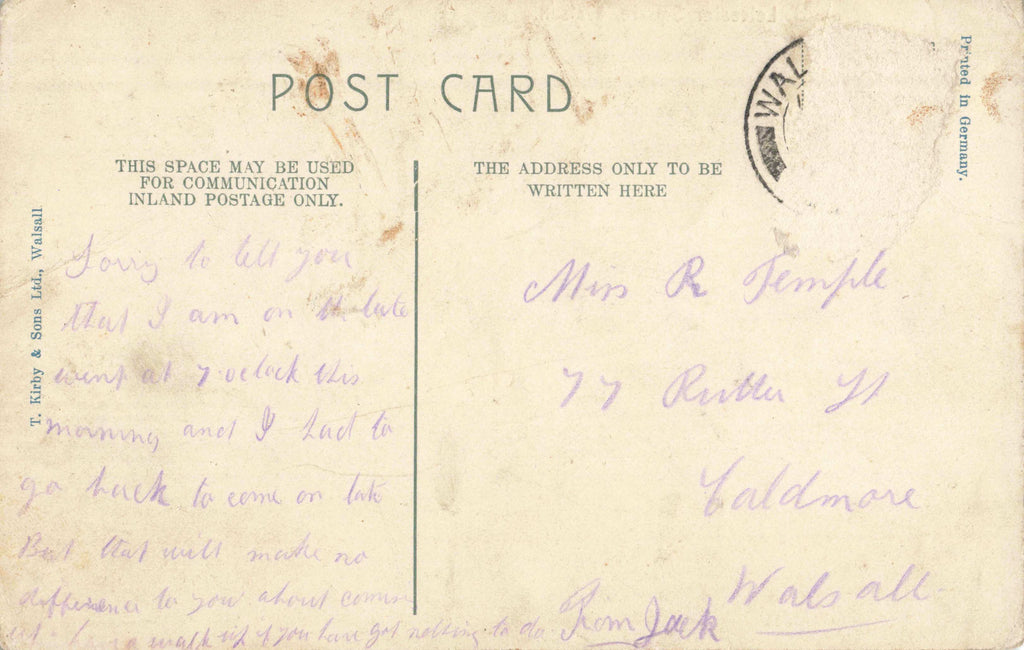 POST CARD
WAL
Printed in Germany.
THIS SPACE MAY BE USED
FOR COMMUNICATION
INLAND POSTAGE ONLY.
THE ADDRESS ONLY TO BE
WRITTEN HERE
T. Kirby & Sons Ltd., Walsall
Sorry to tell you
that I am on the late
went at 7 oclock this
morning and I had to
go back to come on late
But that will make no
difference to you about coming
a walk up if you have got nothing to do From Jack
Miss R Temple
77 Rutter St
Caldmore
Walsall